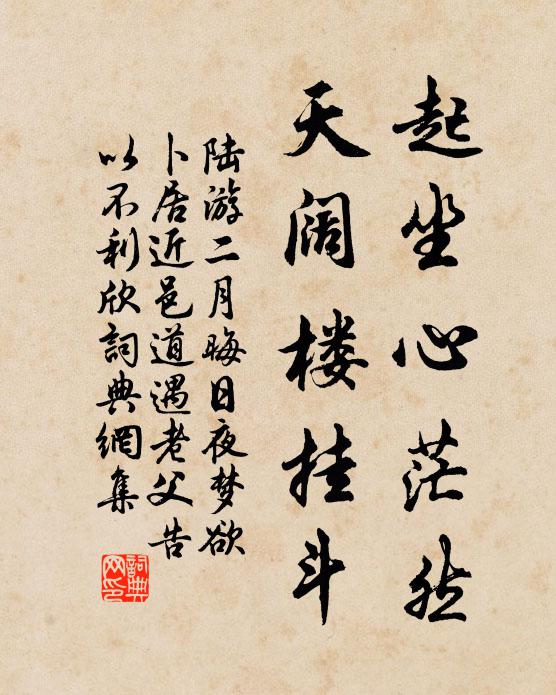 起坐心茫然
天阔楼挂斗
陆游二月晦日夜梦欲
卜居近邑道遇老父告
以不利欣詞典網集
詞典网印